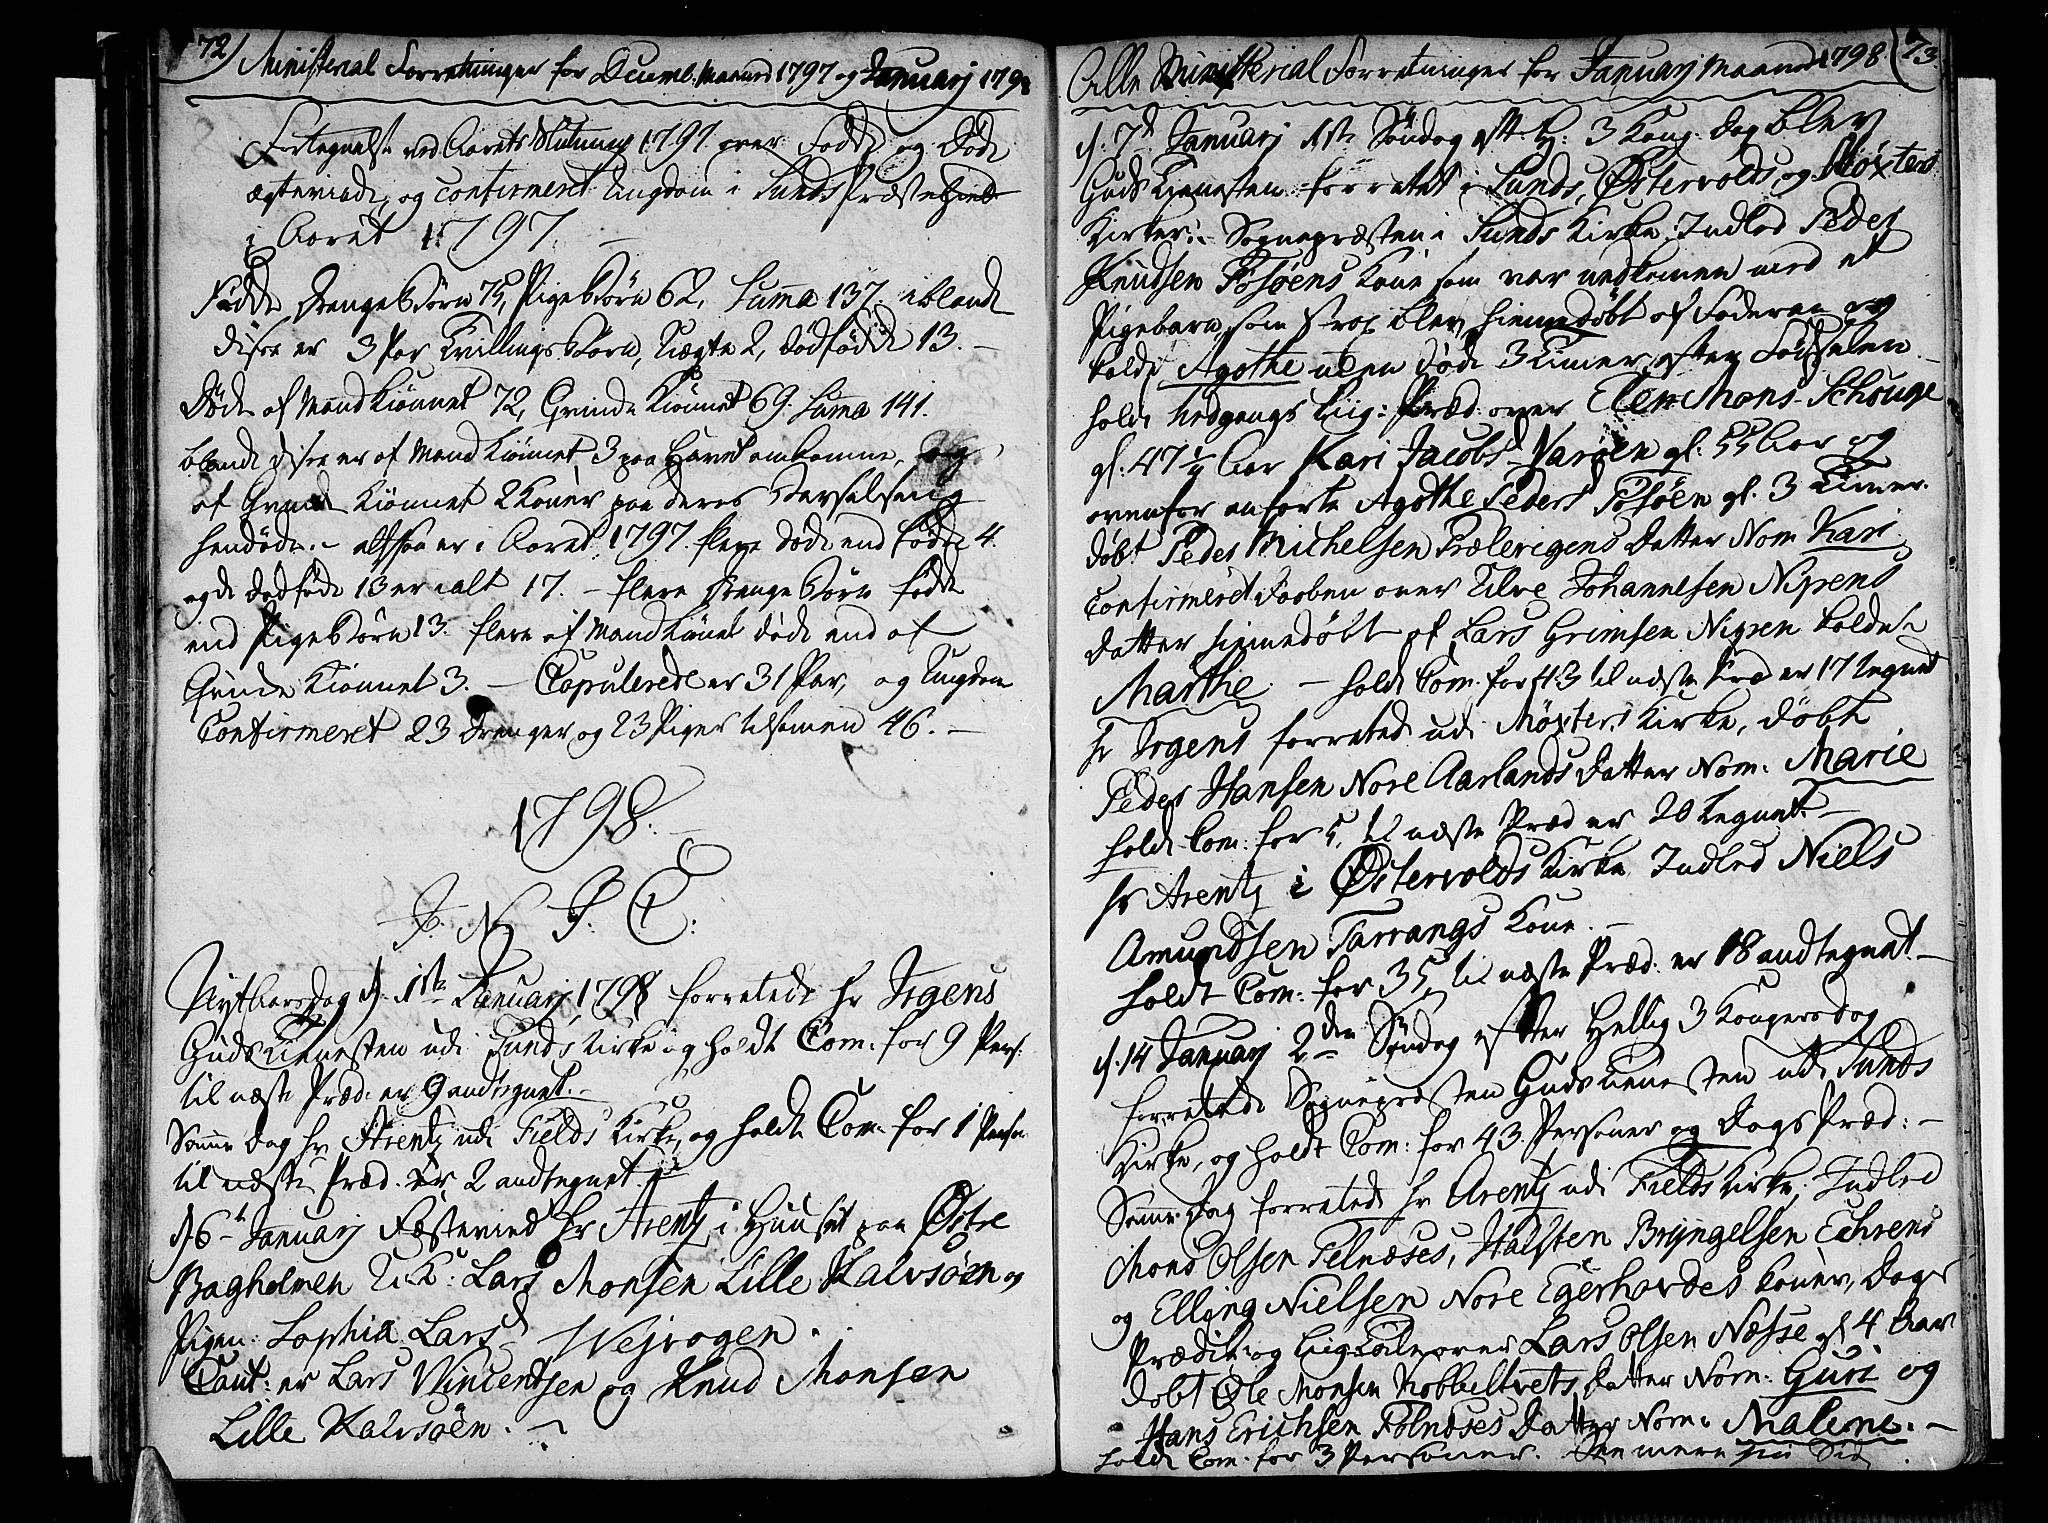 72) Ministerial Forretninger for Decemb. Maaned 1797 og Januarj 1798
Fortegnelse ved Aarets Slutning 1797 over Fødde og Døde
ægteviede, og confirmeret Ungdom i Sunds Præstegield
i Aaret 1797. —
Fødde Drengebørn 75, Pigebørn 62, Summa 137. iblandt
disse er 3 Par Tvillingsbørn, Uægte 2, dødfødde 13. —
Døde af Mandkiønnet 72, Qvindekiønnet 69. Summa 141.
blandt disse er af Mandkiønnet 3 paa Havet omkomne, og
af Qvindekiønnet 2 Koner paa deres Barselseng
hendøde. — altsaa er i Aaret 1797. flere døde end fødde 4.
og de dødføde 13 er ialt 17. — flere Drengebørn fødde
end Pigebørn 13. flere af Mandkiønet døde end af
Qvinde Kiønnet 3. — Copulerede er 31 Par, og Ungdom
Confirmeret 23 Drenge og 23 Piger tilsamen 46. —
1798. —
J. N. J. C:
Nytaarsdag d. 1ste Januarj 1798 forretede hr Irgens
Gudstienesten udi Sunds Kirke og holdt Com: for 9 Pers:
til næste Præd: er 9 andtegnet. —
Samme Dag hr Arentz udi Fields Kirke, og holdt Com: for 1 Person
til næste Præd. er 2 andtegnet. —
d. 6t Januarj Fæsteviede hr Arentz i Huuset paa Østre
Bagholmen U:K: Lars Monsen Lille Kalvsøen og
Pigen: Sophia Larsd Wejvogen.
Caut: er Lars Vincentsen og Knud Monsen
Lille Kalvsøen. —
Alle Ministerial Forretninger for Januarj Maaned 1798. (73
d. 7d Januarj 1ste Søndag efter H: 3 Kong. Dag blev
Gudstienesten forrettet i Sunds, Østervolds og Møxters
Kirker: — Sognepræsten i Sunds Kirke, Indled Peder
Knudsen Tofsøens Kone som var nedkomen med et
Pigebarn, som strax blev hiemedøbt af Faderen og
kaldt Agothe men døde 3 Timer efter Fødselen. —
holdt Liig: Præd. over Elen Mons Schouge
gl. 47 1/4 Aar Kari Jacobsd Varøen gl. 55 Aar og
ovenfor anførte Agothe Pedersd Tofsøen gl. 3 Timer.
døbt Peder Michelsen Trælevigens Datter Nom Kari
Confirmeret Daaben over Ulve Johannesen Nipens
Datter hiemedøbt af Lars Grimsen Nipen kaldet
Marthe. — holdt Com. for 43 til næste Præd er 17 tegnet
hr Irgens forretede udi Møxters Kirke, døbt
Peder Hansen Nore Aarlands Datter Nom: Marie
holdt Com: for 5, til næste Præd er 20 tegnet. —
hr Arentz i Østervolds Kirke Indled Niels
Amundsen Tarrangs Kone. —
holdt Com: for 35, til næste Præd: er 18 andtegnet —
d. 14 Januarj 2den Søndag efter Hellig 3 Kongersdag
forretede Sognepræsten Gudstienesten udi Sunds
Kirke, og holdt Com: for 43. Personer og DagsPræd: —
Samme Dag forretede hr Arentz udi Fields Kirke, Indled
Mons Olsen Telnæses, Halsten Bryngelsen Echrens
og Elling Nielsen Nore Egerhovdes Koner, Dags
Prædik: og Liigtale over Lars Olsen Næsse gl 4 Aar
døbt Ole Monsen Kobbeltvets Datter Nom: Guri og
Hans Erichsen Telnæses Datter Nom: Malene. —
holdt Com: for 3 Personer. See mere hin Side